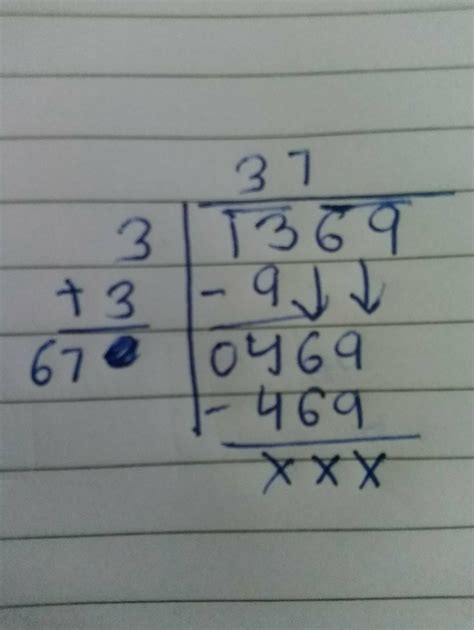 37
3 1369
+ 3 - 9↓ ↓
67 0469
- 469
x x x